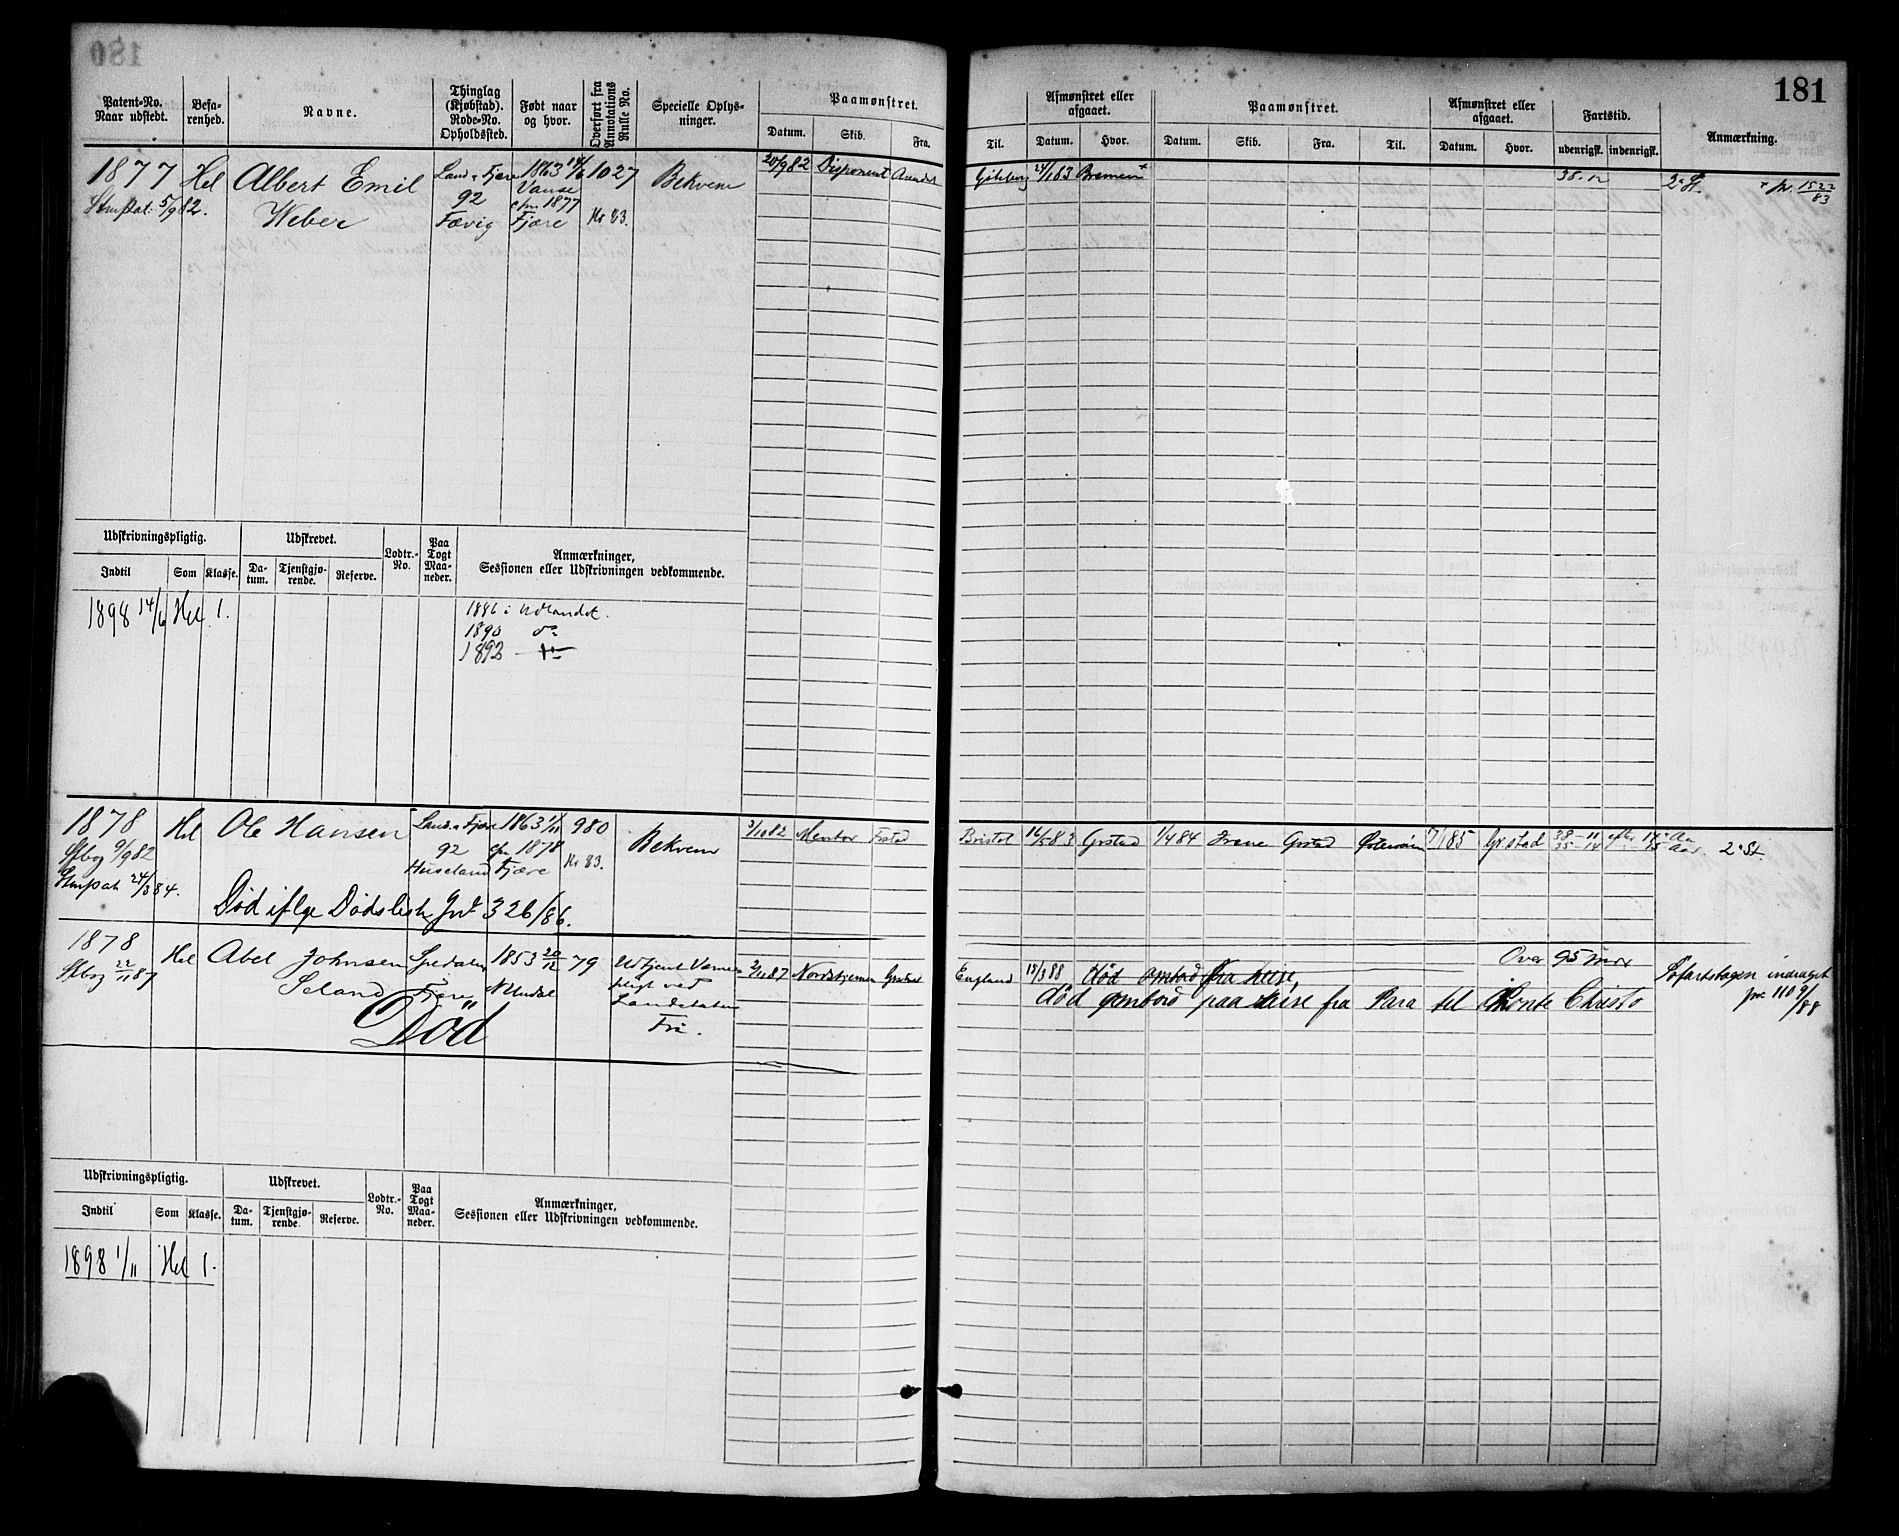 181
Patent-No. Naar udstedt.
Befarenhed.
Navne.
Thinglag (Kjøbstad). Rode-No. Opholdssted.
Født naar og hvor.
Overført fra Annotations Rulle No.
Specielle Oplysninger.
Paamønstret.
Datum. Skib. Fra.
Til.
Afmønstret eller afgaaet.
Datum. Hvor.
Paamønstret.
Datum. Skib. Fra. Til.
Afmønstret eller afgaaet.
Datum. Hvor.
Fartstid.
udenrigsk. indenrigsk.
Anmærkning.
1877 Hel Albert Emil Land. Fjære 1863 14/6 1027 Bekvem 20/9 82 Disponent Arendal
5/9 82. Weber 92 Vanse
Fævig efm 1877 Fjære Kr 83.
Gøteborg 24/1 83 Bremen + 38-12 2 St. + pr. 1522/83
Udskrivningspligtig.
Indtil Som Klasse.
Udskrevet.
Datum. Tjenstgjørende. Reserve.
Lodtr.-No.
Paa Togt Maaneder.
Anmærkninger, Sessionen eller Udskrivningen vedkommende.
1898 14/6 Hel 1.
1886 i Udlandet.
1890 do
1892
1878 Hel Ole Hansen Land. Fjære 1863 1/11 980 Bekvem 3/10 82 Mentor
9/9 82 92 efm 1878 Kr 83.
24/3 84. Huseland Fjære
Bristol 16/5 83 Grstad 1/4 84 Irene Grstad 17/1 85 Grstad 38-11 35-14 efter 2 St.
Død iflge Dødsliste Jnr 326/86.
1878 Hel Abel Johnsen 1853 20/12 79 Udtjent Værnepligt ved Landetaten Fri.
22/11 87 Seland Fjære
Død
2/11 87 Nordstjernen Grstad
England 15/3 88 død ombord fra Reise,
død ombord paa Reise fra Para til Monte Christo
Over 95 mdr
Søfartsbogen inddraget
jnr 110 9/88
Udskrivningspligtig.
Indtil Som Klasse.
Udskrevet.
Datum. Tjenstgjørende. Reserve.
Lodtr.-No.
Paa Togt Maaneder.
Anmærkninger, Sessionen eller Udskrivningen vedkommende.
1898 1/11 Hel 1.